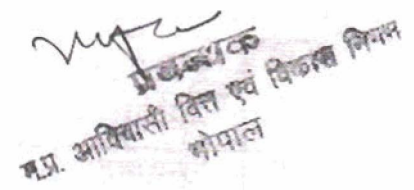 प्रबन्धक
म.प्र. आदिवासी वित्त एवं विकास निगम
भोपाल